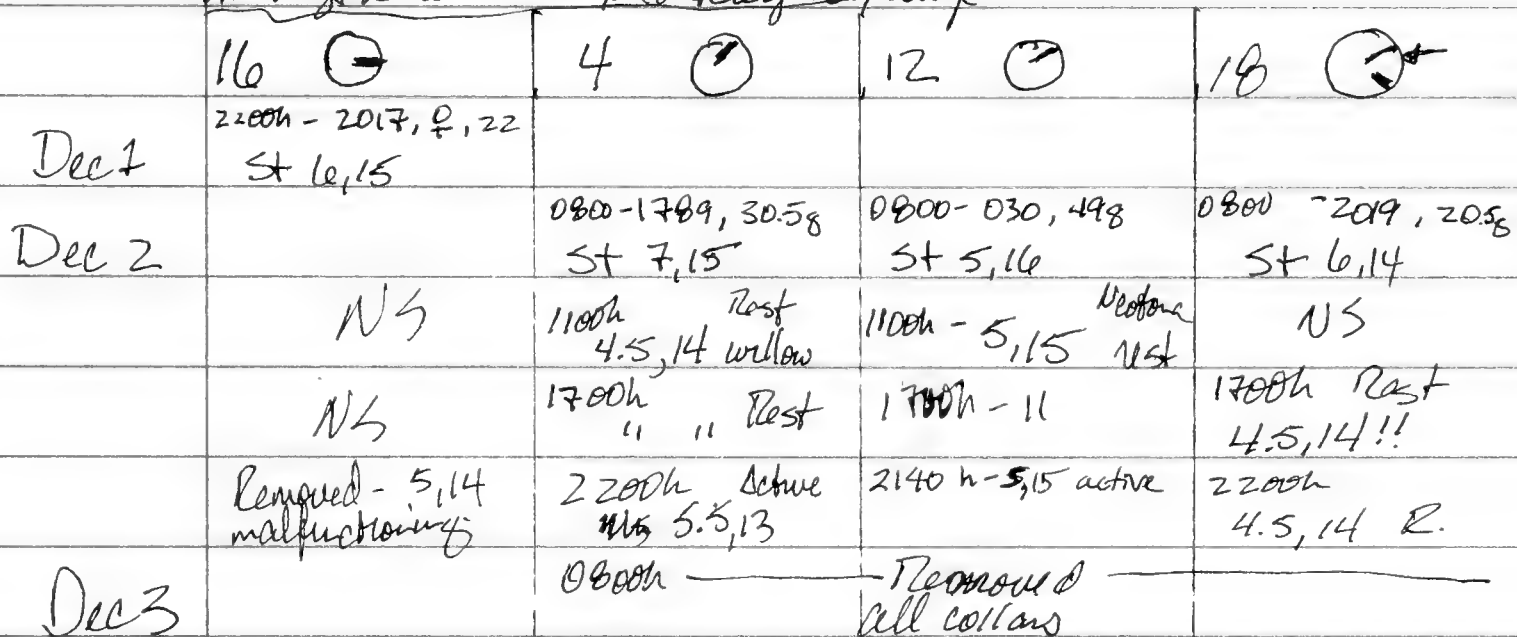 16 4 12 18
Dec 1
2200h - 2017, ♀, 22
St 6,15
Dec 2
0800-1789, 30.5g
St 7,15
0800- 030, 49g
St 5,16
0800 - 2019, 20.5g
St 6,14
NS
1100h Rest
4.5, 14 willow
1100h - 5,15 Neotoma
nest
NS
NS
1700h
" " Rest
1700h - 11
1700h Rest
4.5,14!!
Removed - 5,14
malfunctioning
2200h Active
5.5,13
2140 h - 5,15 active
2200h
4.5, 14 R.
Dec 3
0800h — Removed —
all collars